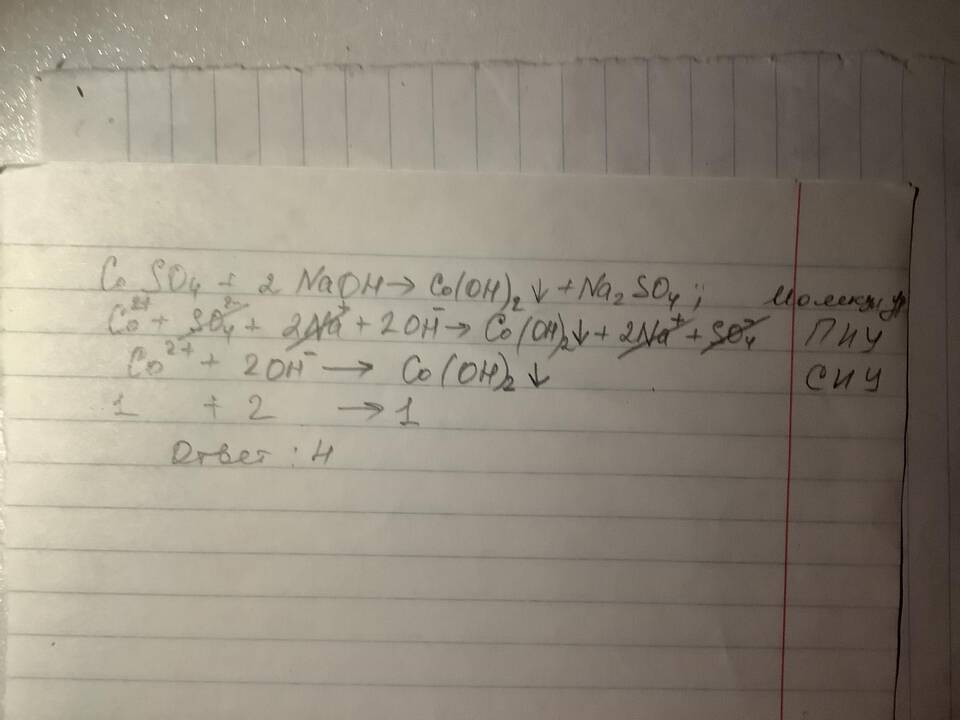 CoSO₄ + 2 NaOH → Co(OH)₂↓ + Na₂SO₄; Молекул
Co²⁺ + SO₄²⁻ + 2Na⁺ + 2OH⁻ → Co(OH)₂↓ + 2Na⁺ + SO₄²⁻ ПИУ
Co²⁺ + 2OH⁻ → Co(OH)₂↓ СИУ
1 + 2 → 1
Ответ: 4